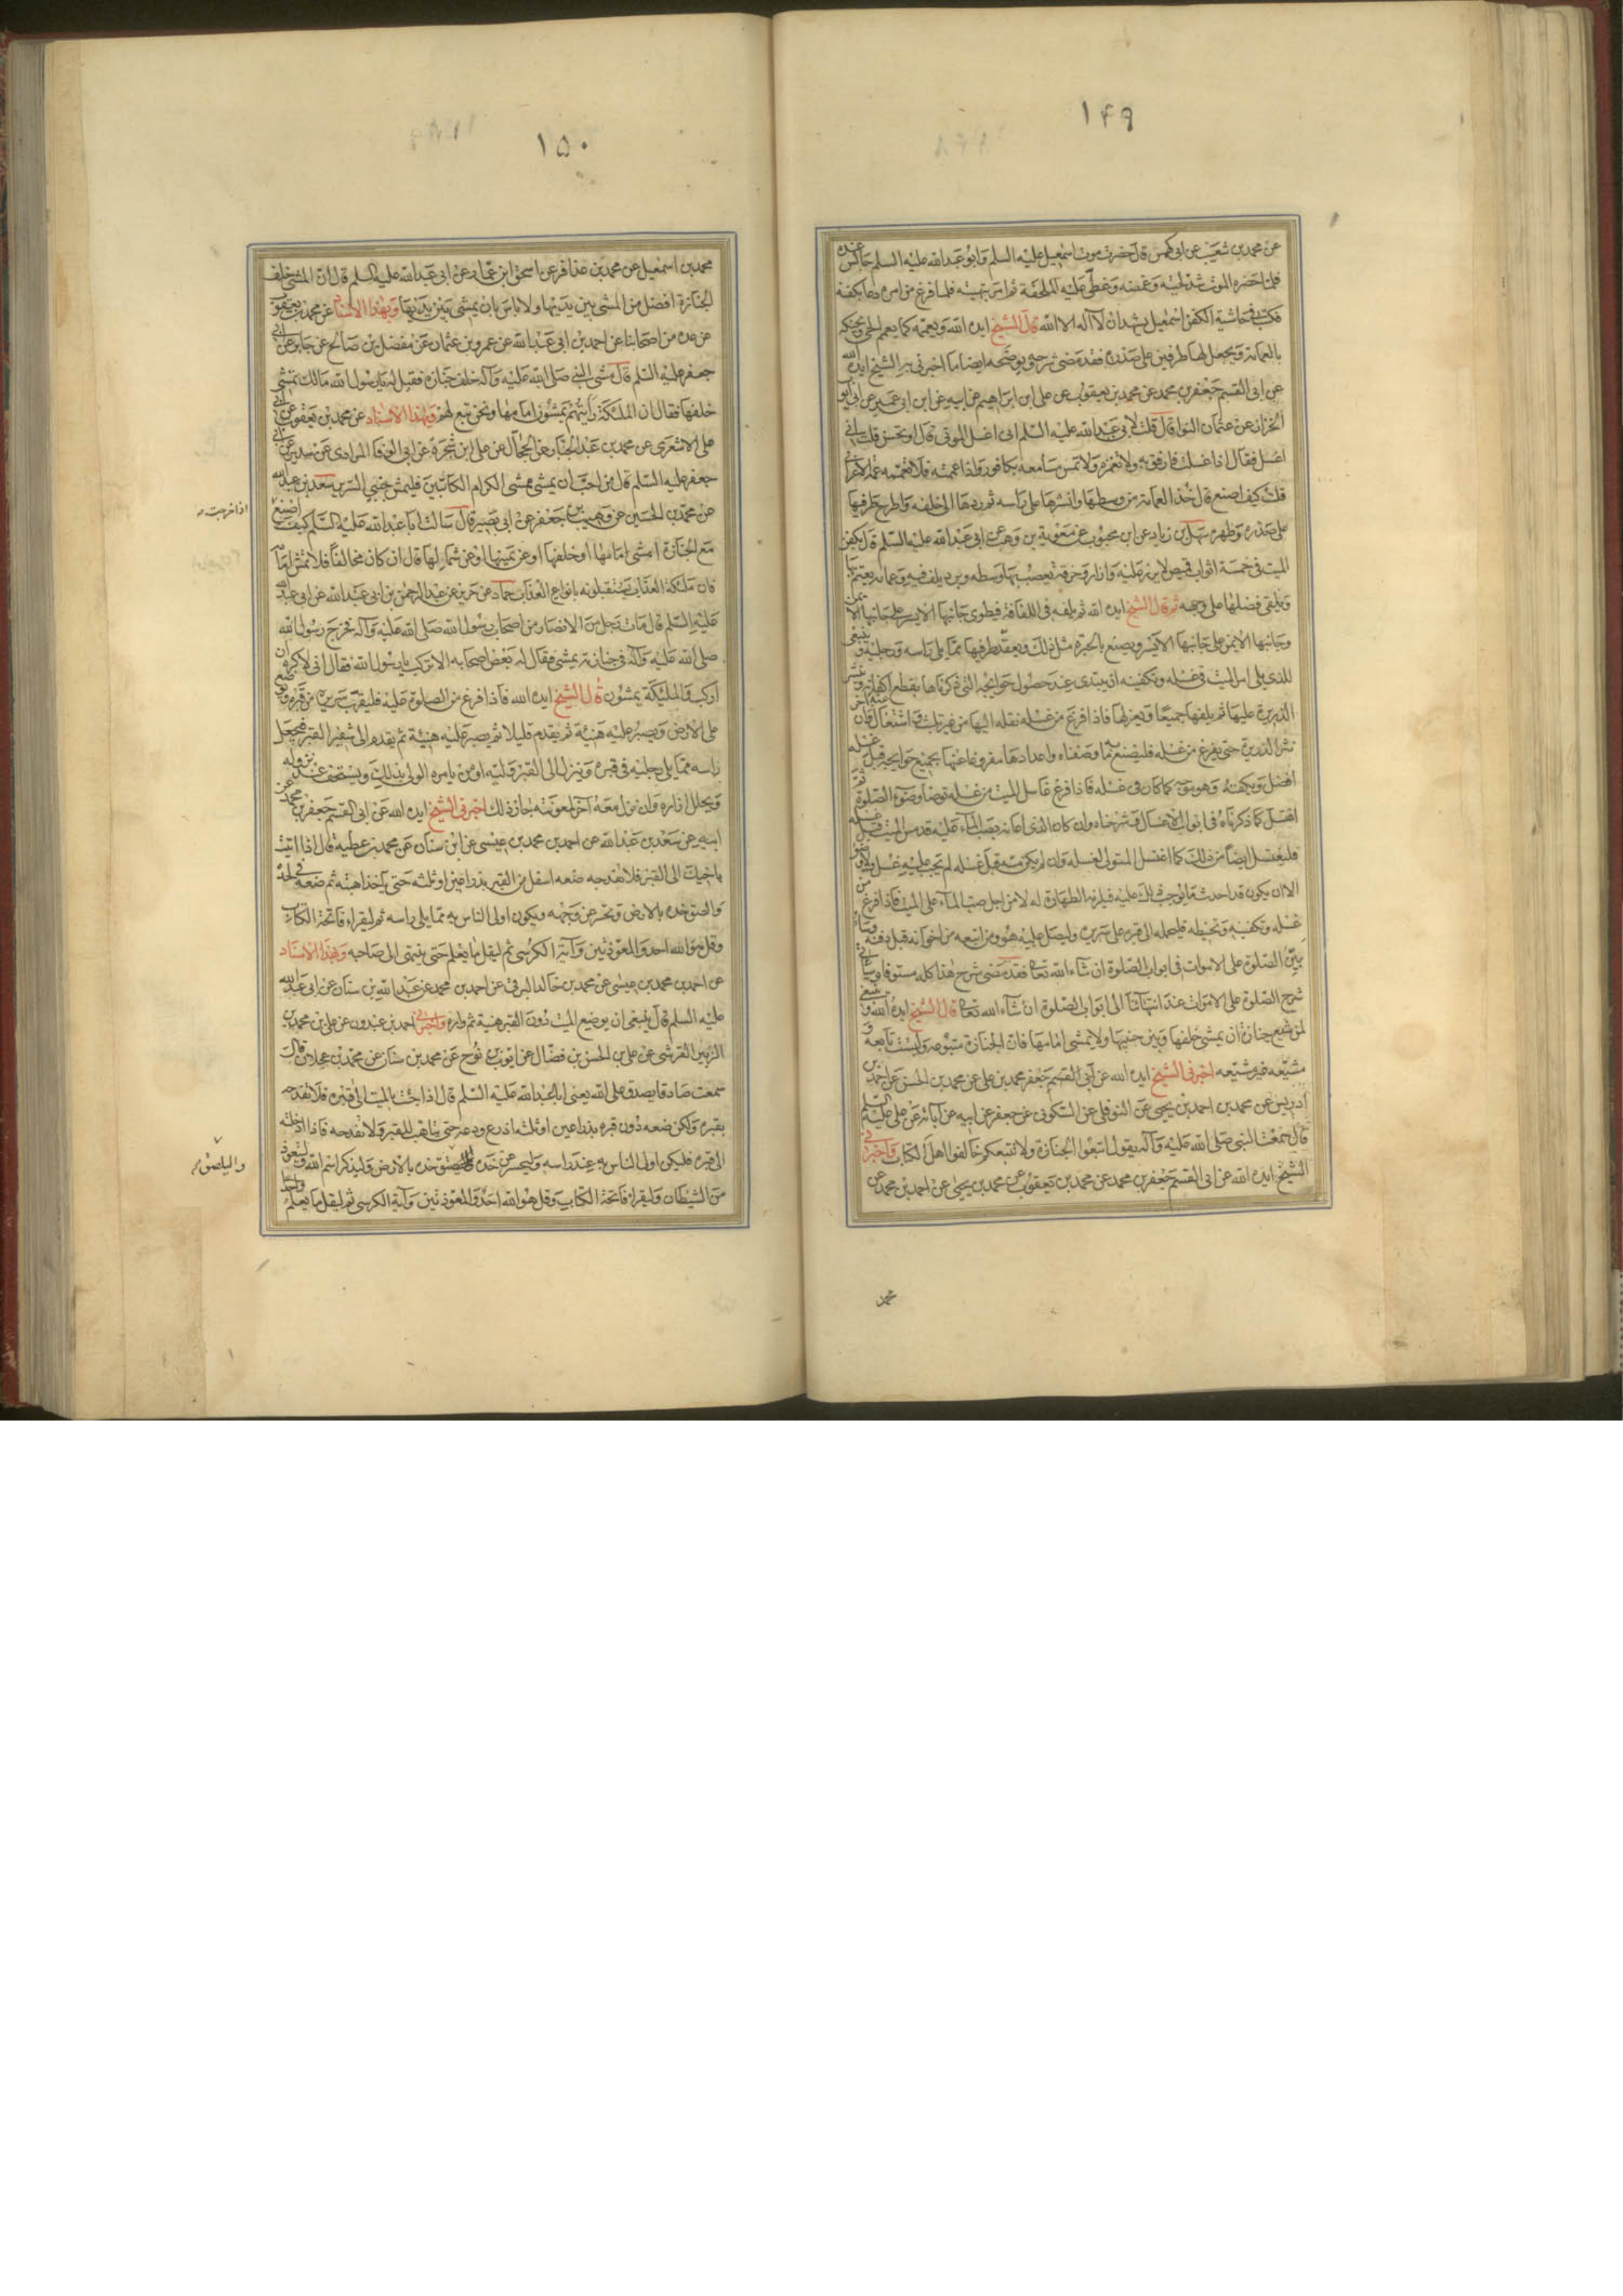 ١٤٩
عن محمد بن شعيب عن ابي كهمس قال حضرت موت اسمعيل عليه السلم وابو عبد الله عليه السلم جالس عنده
فلما حضره الموت شد لحيته وغمضه وغطى عليه الملحفة ثم امر بتهيئته فلما فرغ من امره دعا بكفنه
فكتب في حاشية الكفن اسمعيل يشهد ان لا اله الا الله قال الشيخ ايده الله ويعممه كما يعمم الحي ويحنكه
بالعمامة ويجعل لها طرفين على صدره فقد مضى شرحه ويوضحه ايضا ما اخبرني به الشيخ ايده الله
عن ابي القسم جعفر بن محمد عن محمد بن يعقوب عن علي ابن ابراهيم عن ابيه عن ابن ابي عمير عن ابي ايوب
الخزاز عن عثمان النوا قال قلت لابي عبد الله عليه السلم اني اغسل الموتى قال او تحسن قلت اني
اغسل فقال اذا غسلت فارفق به ولا تغمزه ولا تمس مسامعه بكافور واذا عممته فلا تعممه عمة الاعرابي
قلت كيف اصنع قال خذ العمامة من وسطها وانشرها على راسه ثم ردها الى خلفه واطرح طرفيها
على صدره وظهره سهل بن زياد عن ابن محبوب عن معوية بن وهب عن ابي عبد الله عليه السلم قال يكفن
الميت في خمسة اثواب قميص لا يزر عليه وازار وخرقة يعصب بها وسطه وبرد يلف فيه وعمامة يعتم بها
ويلقى فضلها على وجهه ثم قال الشيخ ايده الله ثم يلفه في اللفافة فيطوي جانبها الايسر على جانبها الايمن
وجانبها الايمن على جانبها الايسر ويصنع بالحبرة مثل ذلك ويعقد طرفيها مما يلي راسه ورجليه وينبغي
للذي يلي امر الميت في غسله وتكفينه ان يبتدى عند حصول حوائجه التي ذكرناها بقطع اكفانه وينثر
الذريرة عليها ثم يلفها جميعا ويعزلها فاذا فرغ من غسله نقله اليها من غير تلبث واشتغال عنه فان اخر
نثر الذريرة حتى يفرغ من غسله فليصنع به ما وصفناه واعدادها مفروغا عنها بجميع حوائجه قبل غسله
افضل ويكفنه وهو موجه كما كان في غسله فاذا فرغ غاسل الميت من غسله توضا وضوء الصلوة ثم
اغتسل كما ذكرناه في ابواب الاغسال وشرحناه وان كان الذي اعانه بصب الماء عليه قد مس الميت قبل غسله
فليغتسل ايضا من ذلك كما اغتسل المتولي لغسله وان لم يكن مسه قبل غسله لم يجب عليه غسل ولا وضوء
الا ان يكون قد احدث ما يوجب ذلك عليه فيلزمه الطهارة له لا من اجل صب الماء على الميت فاذا فرغ من
غسله وتكفينه وتحنيطه فليحمله الى قبره على سريره وليصل عليه هو ومن اتبعه من اخوانه قبل دفنه وسا
بين الصلوة على الاموات في ابواب الصلوة ان شاء الله تعالى فقد مضى شرح هذا كله مستوفا وساتي
شرح الصلوة على الاموات عند انتهائنا الى ابواب الصلوة ان شاء الله تعالى قال الشيخ ايده الله وينبغي
لمن شيع جنازة ان يمشي خلفها وبين جنبيها ولا يمشي امامها فان الجنازة متبوعة وليست تابعة و
مشيعه غير مشيعه اخبرني الشيخ ايده الله عن ابي القسم جعفر بن محمد بن علي عن محمد بن الحسن عن احمد بن
ادريس عن محمد بن احمد بن يحيى عن النوفلي عن السكوني عن جعفر عن ابيه عن آبائه عن علي عليه السلم
قال سمعت النبي صلى الله عليه وآله يقول اتبعوا الجنازة ولا تتبعكم خالفوا اهل الكتاب واخبرني
الشيخ ايده الله عن ابي القسم جعفر بن محمد عن محمد بن يعقوب عن محمد بن يحيى عن احمد بن محمد عن
محمد
١٥٠
محمد بن اسمعيل عن محمد بن عذافر عن اسحق ابن عمار عن ابي عبد الله عليه السلم قال ان المشي خلف
الجنازة افضل من المشي بين يديها ولا باس بان يمشي بين يديها وبهذا الاسناد عن محمد بن يعقوب
عن عدة من اصحابنا عن احمد بن ابي عبد الله عن عمرو بن عثمان عن مفضل بن صالح عن جابر عن ابي
جعفر عليه السلم قال مشى النبي صلى الله عليه وآله خلف جنازة فقيل له يا رسول الله مالك تمشي
خلفها فقال ان الملئكة رايتهم يمشون امامها ونحن تبع لهم وبهذا الاسناد عن محمد بن يعقوب عن ابي
علي الاشعري عن محمد بن عبد الجبار عن الحجال عن علي ابن شجرة عن ابي الوفا المرادي عن سدير عن ابي
جعفر عليه السلم قال من احب ان يمشي ممشى الكرام الكاتبين فليمش جنبي السرير سعد بن عبد الله
عن محمد بن الحسين عن وهيب بن جعفر عن ابي بصير قال سالت ابا عبد الله عليه السلم كيف اصنع
اذا خرجت
مع الجنازة امشي امامها او خلفها او عن يمينها او عن شمالها قال ان كان مخالفا فلا تمش امامه
فان ملئكة العذاب يستقبلونه بانواع العذاب حماد عن حريز عن عبد الرحمن بن ابي عبد الله عن ابي عبد الله
عليه السلم قال مات رجل من الانصار من اصحاب رسول الله صلى الله عليه وآله فخرج رسول الله
صلى الله عليه وآله في جنازته يمشي فقال له بعض اصحابه الا تركب يا رسول الله فقال اني لاكره ان
اركب والملئكة يمشون قال الشيخ ايده الله فاذا فرغ من الصلوة عليه فليقرب سريره من قبره ويوضع
على الارض ويصبر عليه هنيئة ثم يقدم قليلا ثم يصبر عليه هنيئة ثم يقدم الى شفير القبر فيجعل
راسه مما يلي رجليه في قبره وينزل الى القبر وليه او من يامره الولي بذلك ويستحف عند نزوله
ويحلل ازاره وان نزل معه آخر لمعونته جاز ذلك اخبرني الشيخ ايده الله عن ابي القسم جعفر بن محمد عن
ابيه عن سعد بن عبد الله عن احمد بن محمد بن عيسى عن ابن سنان عن محمد بن عطية قال اذا اتيت
باخيك الى القبر فلا تفدحه ضعه اسفل من القبر بذراعين او ثلثة حتى ياخذ اهبته ثم ضعه في لحده
والصق خده بالارض وتحسر عن وجهه ويكون اولى الناس به مما يلي راسه ثم ليقراء فاتحة الكتاب
وقل هو الله احد والمعوذتين وآية الكرسي ثم ليقل ما يعلم حتى ينتهي الى صاحبه وبهذا الاسناد
عن احمد بن محمد بن عيسى عن محمد بن خالد البرقي عن احمد بن محمد عن عبد الله بن سنان عن ابي عبد الله
عليه السلم قال ينبغي ان يوضع الميت دون القبر هنيئة ثم واره واخبرني احمد بن عبدون عن علي بن محمد بن
الزبير القرشي عن علي بن الحسن بن فضال عن ايوب بن نوح عن محمد بن سنان عن محمد بن عجلان قال
سمعت صادقا يصدق على الله يعني ابا عبد الله عليه السلم قال اذا جئت بالميت الى قبره فلا تفدحه
بقبره ولكن ضعه دون قبره بذراعين او ثلثة اذرع ودعه حتى يتاهب للقبر ولا تفدحه فاذا ادخلته
الى قبره فليكن اولى الناس به عند راسه وليحسر عن خده وليلصق خده بالارض وليذكر اسم الله وليتعوذ
وليلصق
من الشيطان وليقراء فاتحة الكتاب وقل هو الله احد والمعوذتين وآية الكرسي ثم ليقل ما يعلم واحدا